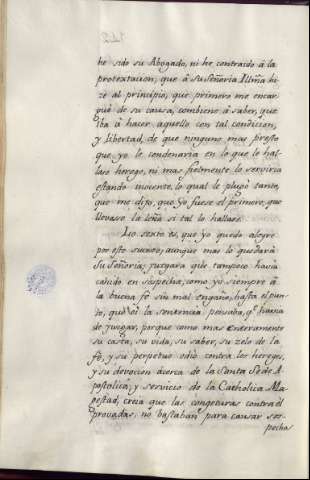 he sido su Abogado, ni he contraido á la
protextacion, que á su Señoria Illma hi-
zé al principio, que primero me encar-
gué de su causa, combiene á saber, que
iba á hacer aquello con tal condicion,
y libertad, de que ninguno mas presto
que yo le condenaria en lo que le hal-
lase herege, ni mas fielmente lo serviria
estando inocente, lo qual le plugó tanto,
que me dijo, que yo fuese el primero, que
llevasse la leña si tal lo hallase.
Lo sexto es, que yo quedo alegre
por este suceso; aunque mas lo quedará
su Señoria; juzgara que tampoco havia
cahido en sospecha, como yo siempre á
la buena fé sin mal engaño, hasta el pun-
to, que oí la sentencia pensaba, qe havia
de juzgar, porque como mas enteramente
su casta, su vida, su saber, su zelo de la
fé, y su perpetuo odio contra los hereges,
y su devocion acerca de la Santa Sede A-
postolica, y servicio de la Catholica Ma-
gestad, creia que las congeturas contra él
provadas, no bastaban para causar sos-
pecha